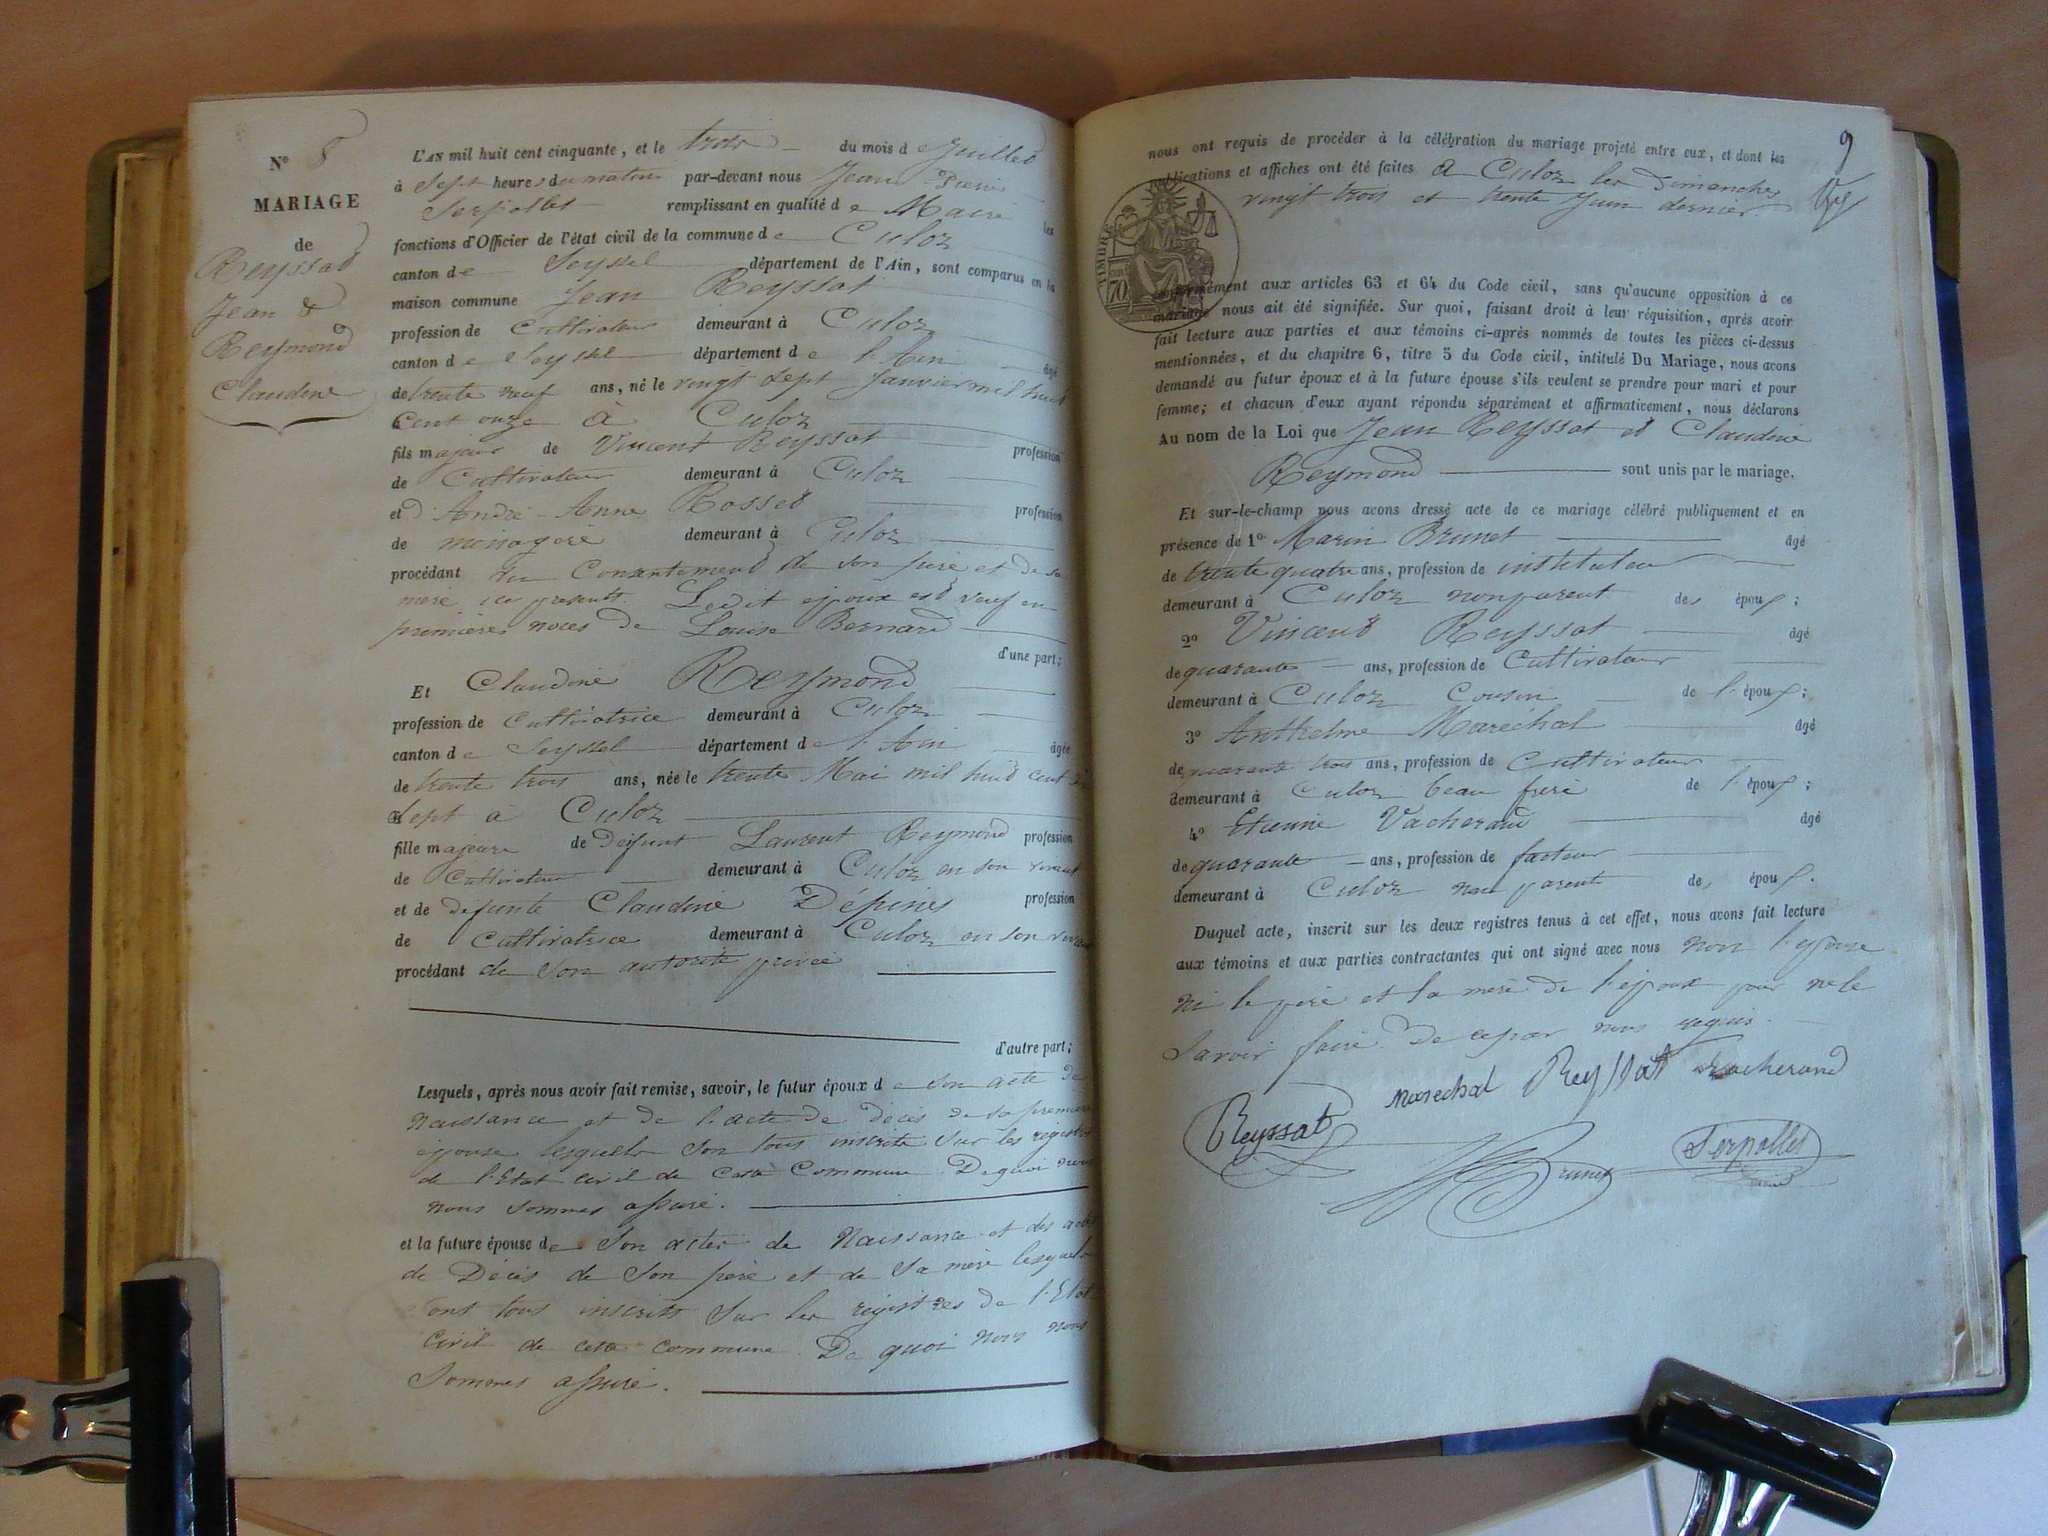 N° 8
MARIAGE
de
Reyssat
Jean &
Reymond
Claudine
L'AN mil huit cent cinquante, et le trois du mois de Juillet
à Sept heures du matin par-devant nous Jean Pierre
Serpollet remplissant en qualité de Maire les
fonctions d'Officier de l'état civil de la commune de Culoz
canton de Seyssel département de l'Ain, sont comparus en la
maison commune Jean Reyssat
profession de Cultivateur demeurant à Culoz
canton de Seyssel département de l'Ain âgé
de trente neuf ans, né le vingt sept Janvier mil huit
Cent onze à Culoz
fils majeur de Vincent Reyssat profession
de Cultivateur demeurant à Culoz
et d'Andrée-Anne Rosset profession
de menagere demeurant à Culoz
procédant du Consentement de son père et de sa
mère ici presents. Ledit epoux est veuf en
premières noces de Louise Bernard
d'une part;
Et Claudine Reymond
profession de Cultivatrice demeurant à Culoz
canton de Seyssel département de l'Ain âgée
de trente trois ans, née le trente Mai mil huit cent dix
sept à Culoz
fille majeure de Défunt Laurent Reymond profession
de Cultivateur demeurant à Culoz en son vivant
et de défunte Claudine Dépines profession
de Cultivatrice demeurant à Culoz en son vivant
procédant de Son autorité privée
d'autre part;
Lesquels, après nous avoir fait remise, savoir, le futur époux de son acte de
Naissance et de l'acte de décès de sa première
épouse lesquels son tous inscrits Sur les registres
de l'Etat Civil de Cette Commune De quoi nous
nous sommes assuré.
et la future épouse de Son acte de Naissance et des actes
de Décès de Son père et de Sa mère lesquels
sont tous inscrits Sur les registres de l'Etat
Civil de cette commune. De quoi nous nous
Sommes assuré.
9
nous ont requis de procéder à la célébration du mariage projeté entre eux, et dont les
publications et affiches ont été faites à Culoz les Dimanches
vingt trois et trente Juin dernier.
TIMBRE
70
conformément aux articles 63 et 64 du Code civil, sans qu'aucune opposition à ce
mariage nous ait été signifiée. Sur quoi, faisant droit à leur réquisition, après avoir
fait lecture aux parties et aux témoins ci-après nommés de toutes les pièces ci-dessus
mentionnées, et du chapitre 6, titre 5 du Code civil, intitulé Du Mariage, nous avons
demandé au futur époux et à la future épouse s'ils veulent se prendre pour mari et pour
femme; et chacun d'eux ayant répondu séparément et affirmativement, nous déclarons
Au nom de la Loi que Jean Reyssat et Claudine
Reymond sont unis par le mariage.
Et sur-le-champ nous avons dressé acte de ce mariage célébré publiquement et en
présence de 1° Marin Brunet âgé
de trente quatre ans, profession de instituteur
demeurant à Culoz non parent des époux;
2° Vincent Reyssat âgé
de quarante ans, profession de Cultivateur
demeurant à Culoz Cousin de l'époux;
3° Anthelme Maréchal âgé
de quarante trois ans, profession de Cultivateur
demeurant à Culoz beau frère de l'époux;
4° Etienne Vacherand âgé
de quarante ans, profession de facteur
demeurant à Culoz non parent des époux.
Duquel acte, inscrit sur les deux registres tenus à cet effet, nous avons fait lecture
aux témoins et aux parties contractantes qui ont signé avec nous non l'épouse
ni le père et la mère de l'époux pour ne le
Savoir faire de ce par nous requis.
marechal Reyssat vacherand
Reyssat Brunet Serpollet